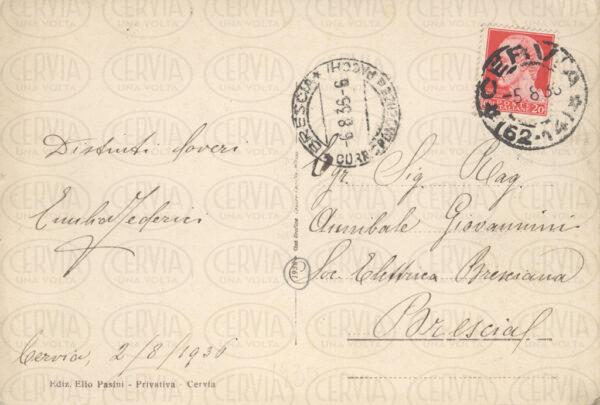 CERVIA
-5.8.36
(62-14)
POSTE ITALIANE 20
BRESCIA
CORR. PACCHI
-6.8.36-9
Distinti doveri
Emilio Federici
Cervia, 2/8/1936
Egr. Sig. Rag.
Annibale Giovannini
Soc. Elettrica Bresciana
Brescia
Ediz. Elio Pasini - Privativa - Cervia
CERVIA
UNA VOLTA